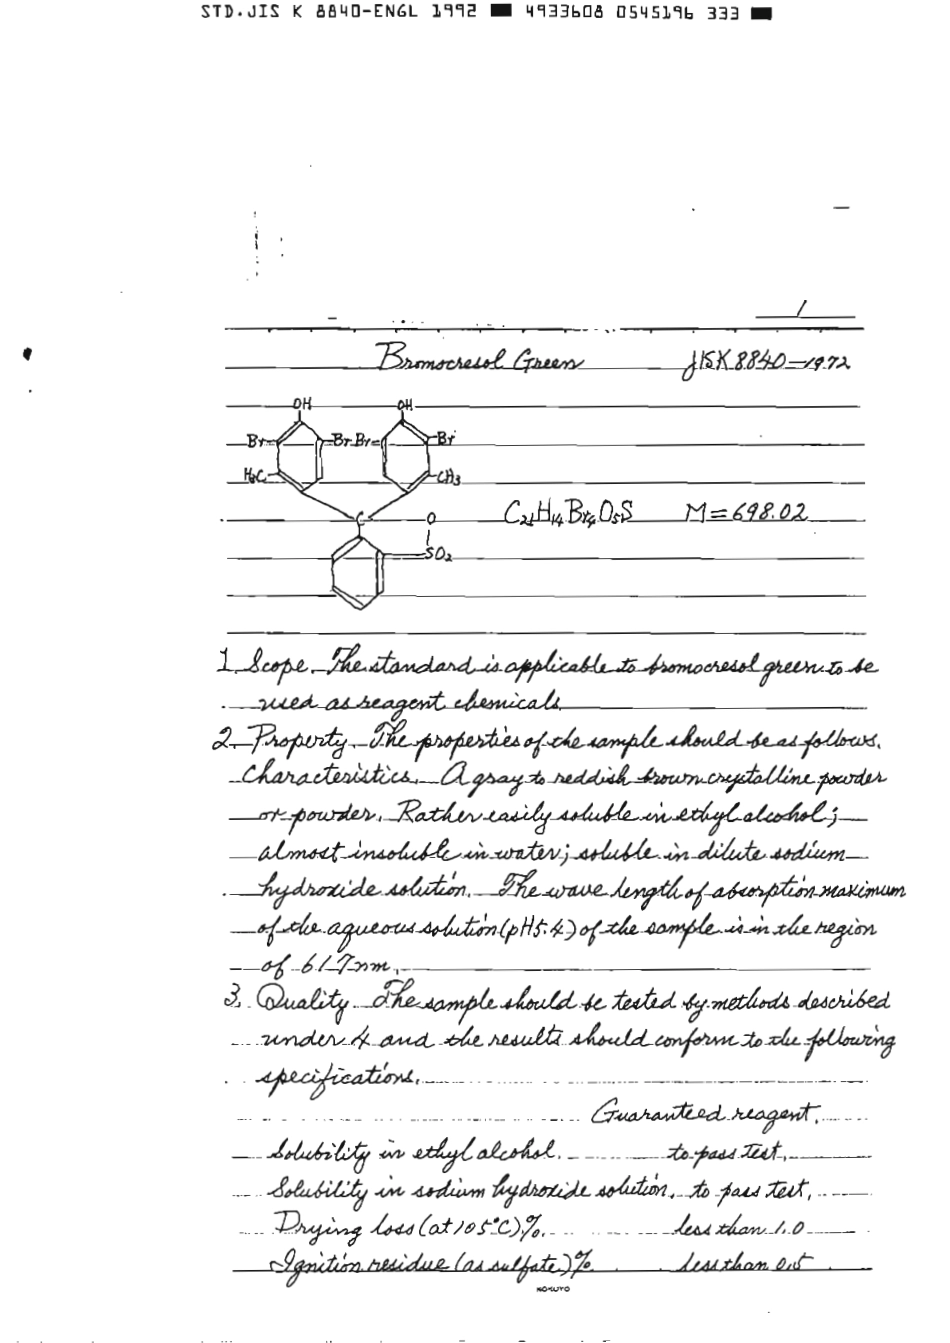 STD.JIS K 8840-ENGL 1992 ■ 4933608 0545196 333 ■
1
Bromocresol Green JISK 8840-1972
OH OH
Br Br Br Br
H3C CH3
C O C21H14Br4O5S M=698.02
SO2
1. Scope. The standard is applicable to bromocresol green to be
used as reagent chemicals.
2. Property. The properties of the sample should be as follows.
Characteristics. A gray to reddish brown crystalline powder
or powder. Rather easily soluble in ethyl alcohol;
almost insoluble in water; soluble in dilute sodium
hydroxide solution. The wave length of absorption maximum
of the aqueous solution (pH5.4) of the sample is in the region
of 617nm.
3. Quality. The sample should be tested by methods described
under 4 and the results should conform to the following
specifications.
Guaranteed reagent.
Solubility in ethyl alcohol. to pass test.
Solubility in sodium hydroxide solution. to pass test.
Drying loss (at 105°C) %. less than 1.0
Ignition residue (as sulfate) % less than 0.5
KOKUYO